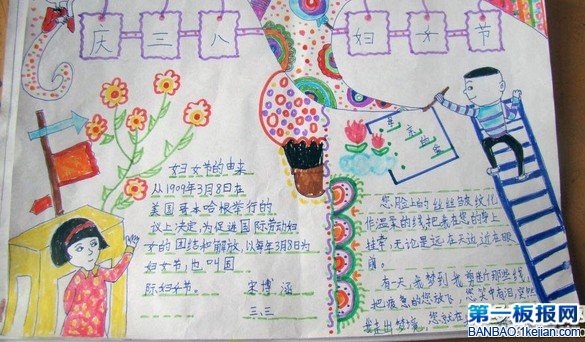 庆三八妇女节
妇女节的由来
从1909年3月8日在
美国哥本哈根举行的
议上决定,为促进国际劳动妇
女的团结和解放,以每年3月8日为
妇女节,也叫国
际妇女节。 宋博涵
三.三
您脸上的丝丝皱纹化
作温柔的线把我在您的身上
挂牵,无论是远在天边,近在眼
前。
有一天,我梦到我剪断那些线,
把疲惫的您放飞,您笑中有泪,突然
我走出梦境,您就在
第一板报网
BANBAO.1kejian.com